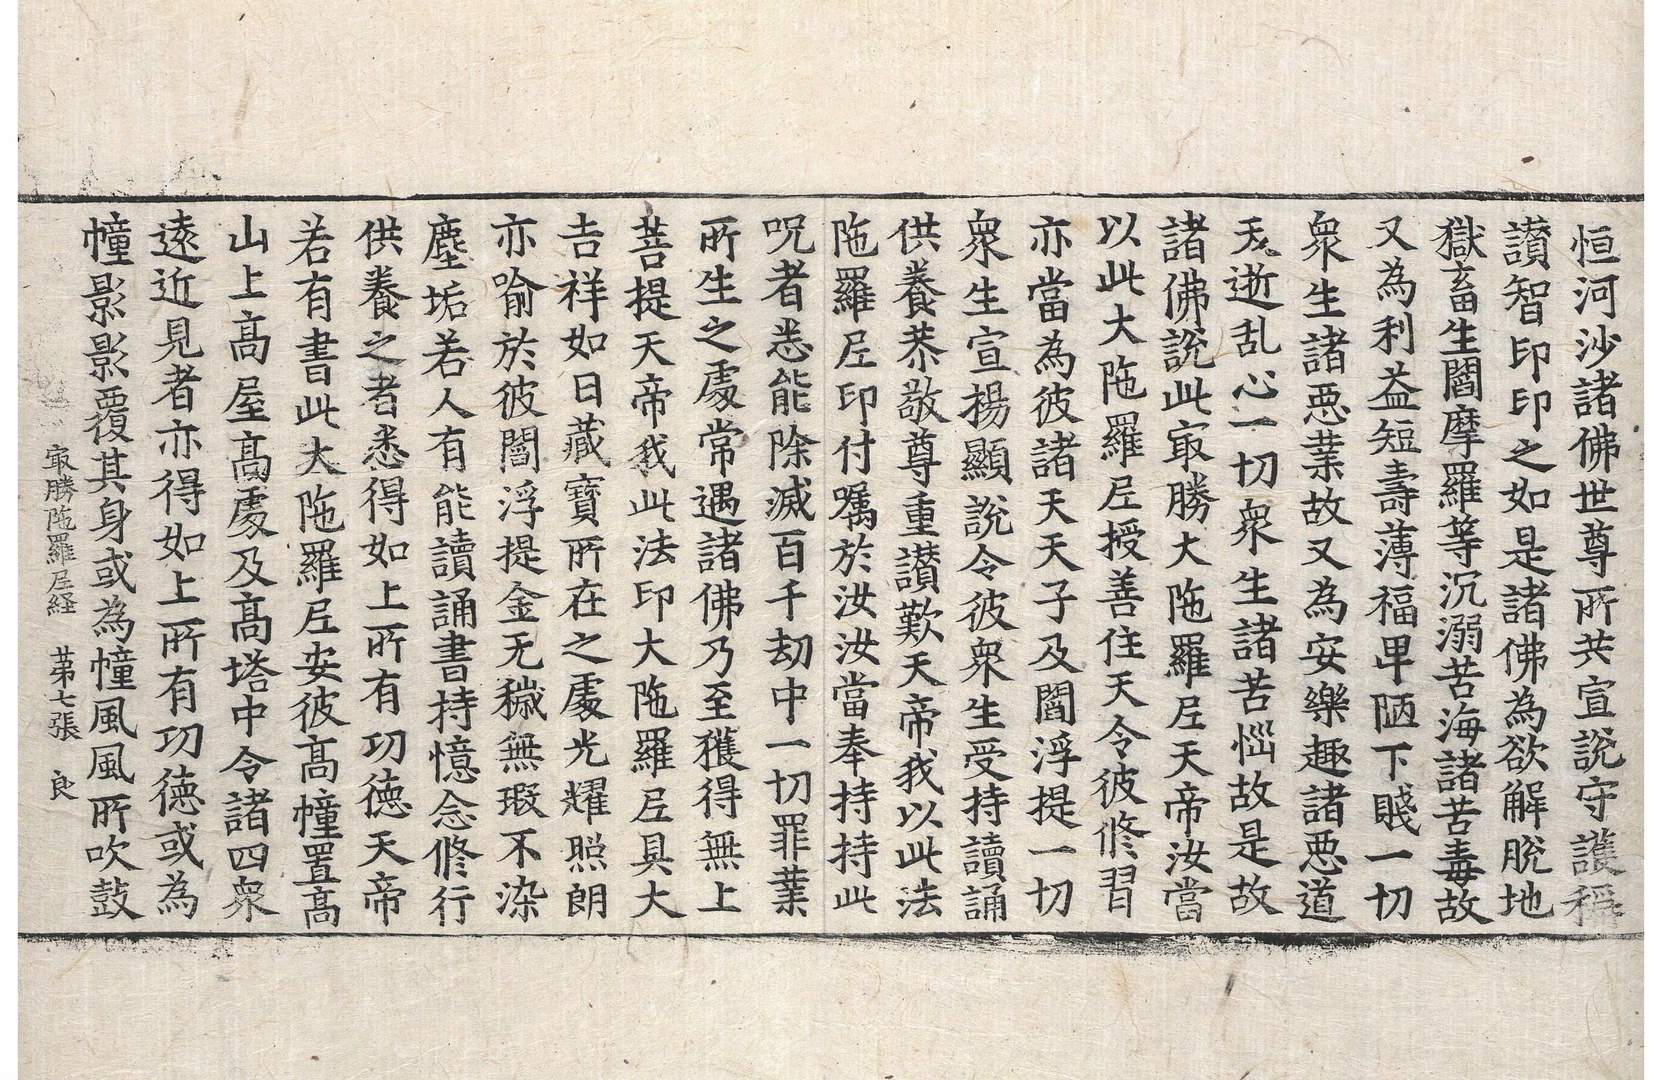 恒河沙諸佛世尊所共宣說守護稱
讃智印印之如是諸佛為欲解脫地
獄畜生閻摩羅等沉溺苦海諸苦毒故
又為利益短壽薄福卑陋下賤一切
衆生諸惡業故又為安樂趣諸惡道
夭逝乱心一切衆生諸苦惱故是故
諸佛說此㝡勝大陁羅尼天帝汝當
以此大陁羅尼授善住天令彼修習
亦當為彼諸天天子及閻浮提一切
衆生宣揚顯說令彼衆生受持讀誦
供養恭敬尊重讃歎天帝我以此法
陁羅尼印付囑於汝汝當奉持持此
呪者悉能除滅百千劫中一切罪業
所生之處常遇諸佛乃至獲得無上
菩提天帝我此法印大陁羅尼具大
吉祥如日藏寶所在之處光耀照朗
亦喻於彼閻浮提金无穢無瑕不染
塵垢若人有能讀誦書持憶念修行
供養之者悉得如上所有功德天帝
若有書此大陁羅尼安彼高幢置高
山上高屋高處及高塔中令諸四衆
遠近見者亦得如上所有功德或為
幢影影覆其身或為幢風風所吹鼓
㝡勝陁羅尼経 苐七張 良